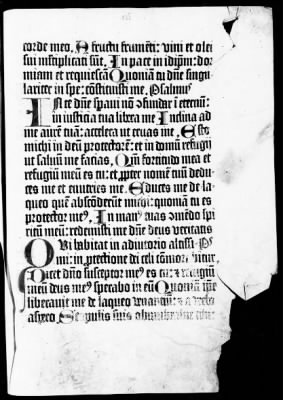 corde meo. A fructu frumēti: vini et olei
sui multiplicati sūt. In pace in idipm̄: dor
miam et requiescā Quoniā tu dn̄e singu-
lariter in spe: constituisti me. Psalmus
IN te dn̄e speraui nō ɔfundar ī eternū:
in iusticia tua libera me Inclina ad
me aurē tuā: accelera ut eruas me. Esto
michi in deum protectorē: et in domū refugij
ut saluum me facias. Qm̄ fortitudo mea et
refugiū meū es tu: et ꝓpter nomē tuū dedu-
ces me et enutries me. Educes me de la-
queo quē absconderūt michi: quoniā tu es
protector meꝰ. In manꝰ tuas ɔmēdo spi-
ritū meū: redemisti me dn̄e deus veritatis
QVi habitat in adiutorio altissi.
in protectione dei celi cōmorabitur.
Dicet dn̄o susceptor meꝰ es tu: et refugiū
meū deus meꝰ sperabo in eū Quoniā ip̄e
liberauit me de laqueo venantiū: et a verbo
aspero Scapulis suis